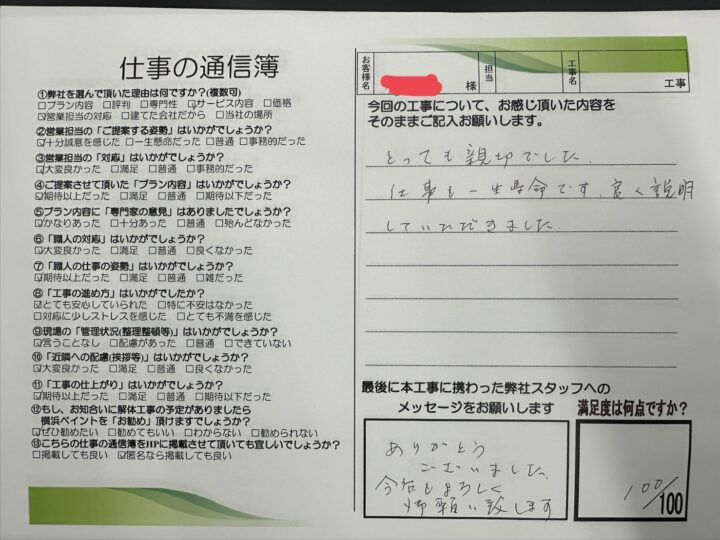 仕事の通信簿
①弊社を選んで頂いた理由は何ですか?(複数可)
□プラン内容 □評判 □専門性 ☑サービス内容 □価格
☑営業担当の対応 □建てた会社だから □当社の場所
②営業担当の「ご提案する姿勢」はいかがでしょうか?
☑十分誠意を感じた □一生懸命だった □普通 □事務的だった
③営業担当の「対応」はいかがでしょうか?
☑大変良かった □満足 □普通 □事務的だった
④ご提案させて頂いた「プラン内容」はいかがでしょうか?
☑期待以上だった □満足 □普通 □期待以下だった
⑤プラン内容に「専門家の意見」はありましたでしょうか?
☑かなりあった □十分あった □普通 □殆んどなかった
⑥「職人の対応」はいかがでしょうか?
☑大変良かった □満足 □普通 □良くなかった
⑦「職人の仕事の姿勢」はいかがでしょうか?
☑期待以上だった □満足 □普通 □雑だった
⑧「工事の進め方」はいかがでしたか?
☑とても安心していられた □特に不安はなかった
□対応に少しストレスを感じた □とても不満を感じた
⑨現場の「管理状況(整理整頓等)」はいかがでしょうか?
☑言うことなし □配慮があった □普通 □できていない
⑩「近隣への配慮(挨拶等)」はいかがでしょうか?
☑大変良かった □満足 □普通 □良くなかった
⑪「工事の仕上がり」はいかがでしょうか?
☑期待以上だった □満足 □普通 □期待以下だった
⑫もし、お知合いに解体工事の予定がありましたら
横浜ペイントを「お勧め」頂けますでしょうか?
☑ぜひ勧めたい □勧めてもいい □わからない □勧められない
⑬こちらの仕事の通信簿をHPに掲載させて頂いても宜しいでしょうか?
□掲載しても良い ☑匿名なら掲載しても良い
お客様名 様 担当 工事名 工事
今回の工事について、お感じ頂いた内容を
そのままご記入お願いします。
とっても親切でした.
仕事も一生懸命です.良く説明
していただきました.
最後に本工事に携わった弊社スタッフへの
メッセージをお願いします
ありがとう
ございました.
今后もよろしく
お願い致します
満足度は何点ですか?
100/100